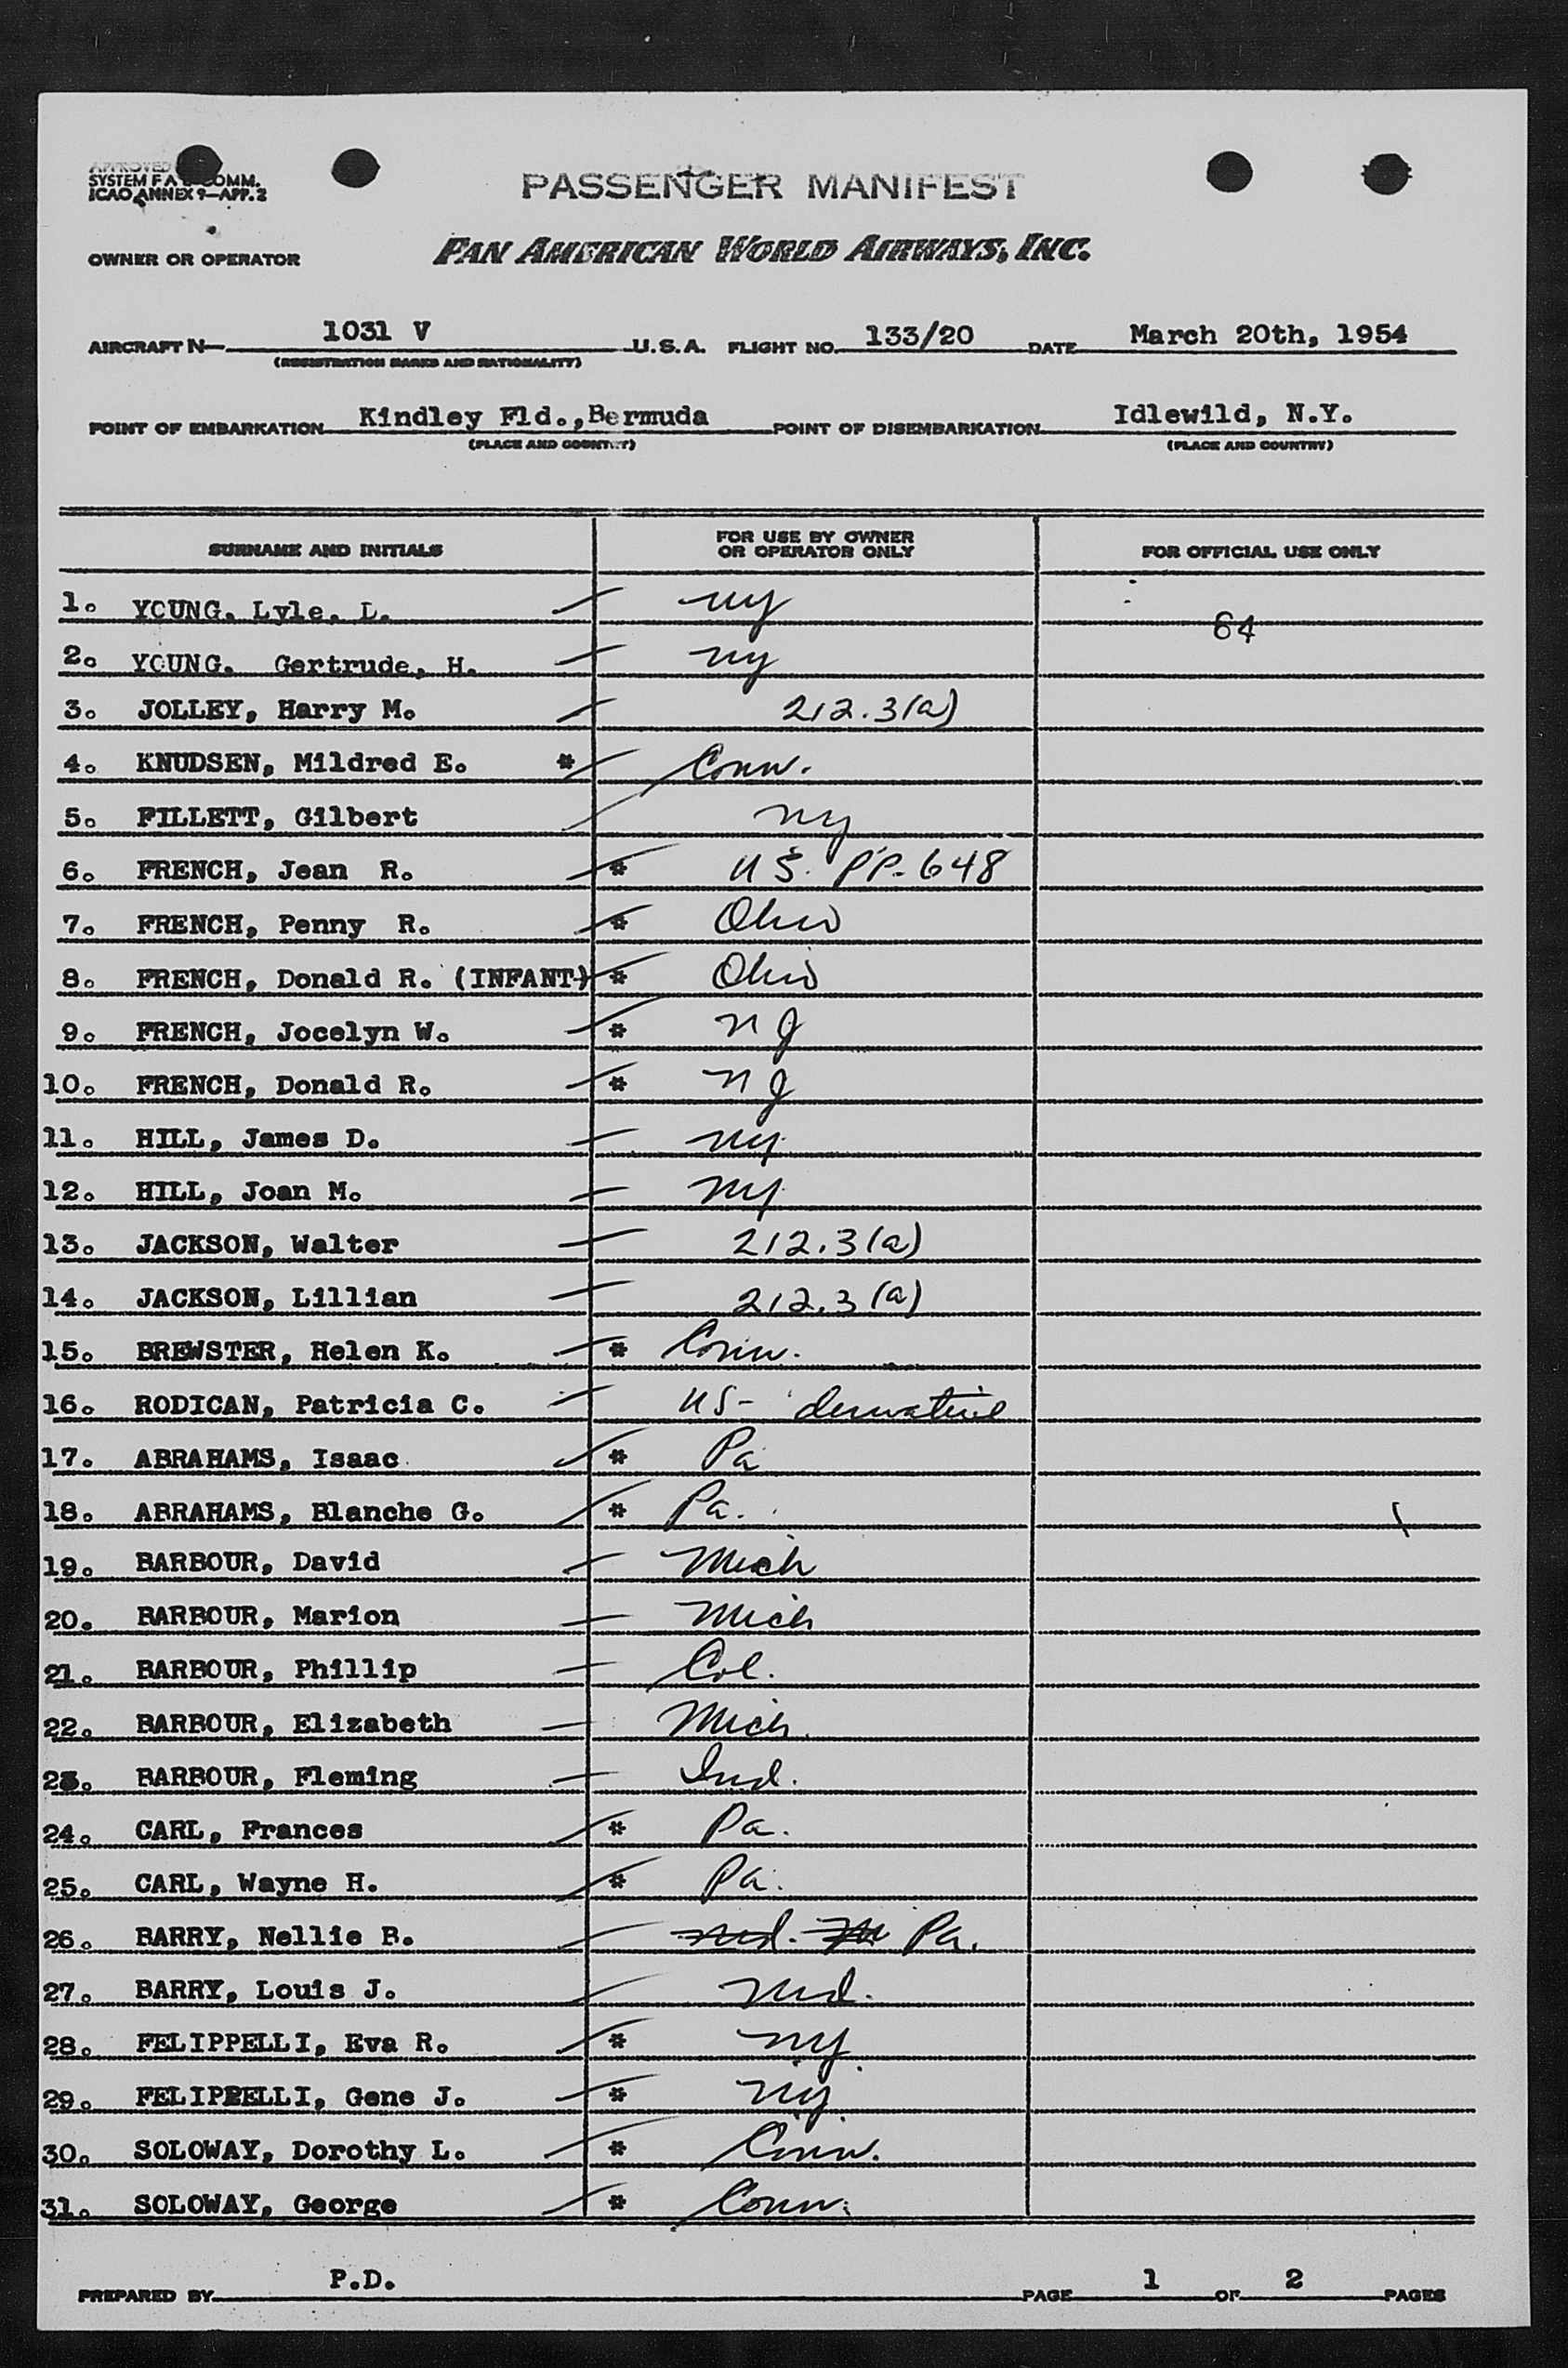 APPROVED
SYSTEM F A L COMM.
ICAO ANNEX 9—APP. 2
PASSENGER MANIFEST
OWNER OR OPERATOR PAN AMERICAN WORLD AIRWAYS, INC.
AIRCRAFT N— 1031 V U.S.A. FLIGHT NO. 133/20 DATE March 20th, 1954
(REGISTRATION MARKS AND NATIONALITY)
POINT OF EMBARKATION Kindley Fld., Bermuda POINT OF DISEMBARKATION Idlewild, N.Y.
(PLACE AND COUNTRY) (PLACE AND COUNTRY)
SURNAME AND INITIALS FOR USE BY OWNER OR OPERATOR ONLY FOR OFFICIAL USE ONLY
1. YOUNG. Lyle. L. ny
64
2. YOUNG. Gertrude, H. ny
3. JOLLEY, Harry M. 212.3(a)
4. KNUDSEN, Mildred E. * Conn.
5. FILLETT, Gilbert ny
6. FRENCH, Jean R. * US. PP. 648
7. FRENCH, Penny R. * Ohio
8. FRENCH, Donald R. (INFANT) * Ohio
9. FRENCH, Jocelyn W. * nJ
10. FRENCH, Donald R. * nJ
11. HILL, James D. ny
12. HILL, Joan M. ny
13. JACKSON, Walter 212.3(a)
14. JACKSON, Lillian 212.3(a)
15. BREWSTER, Helen K. * Conn.
16. RODICAN, Patricia C. US- derivative
17. ABRAHAMS, Isaac * Pa
18. ABRAHAMS, Blanche G. * Pa.
19. BARBOUR, David Mich
20. BARBOUR, Marion Mich
21. BARBOUR, Phillip Col.
22. BARBOUR, Elizabeth Mich.
23. BARBOUR, Fleming Ind.
24. CARL, Frances * Pa.
25. CARL, Wayne H. * Pa.
26. BARRY, Nellie B. Md. Pa.
27. BARRY, Louis J. Md.
28. FELIPPELLI, Eva R. * ny
29. FELIPPELLI, Gene J. * ny
30. SOLOWAY, Dorothy L. * Conn.
31. SOLOWAY, George * Conn.
PREPARED BY P.D. PAGE 1 OF 2 PAGES